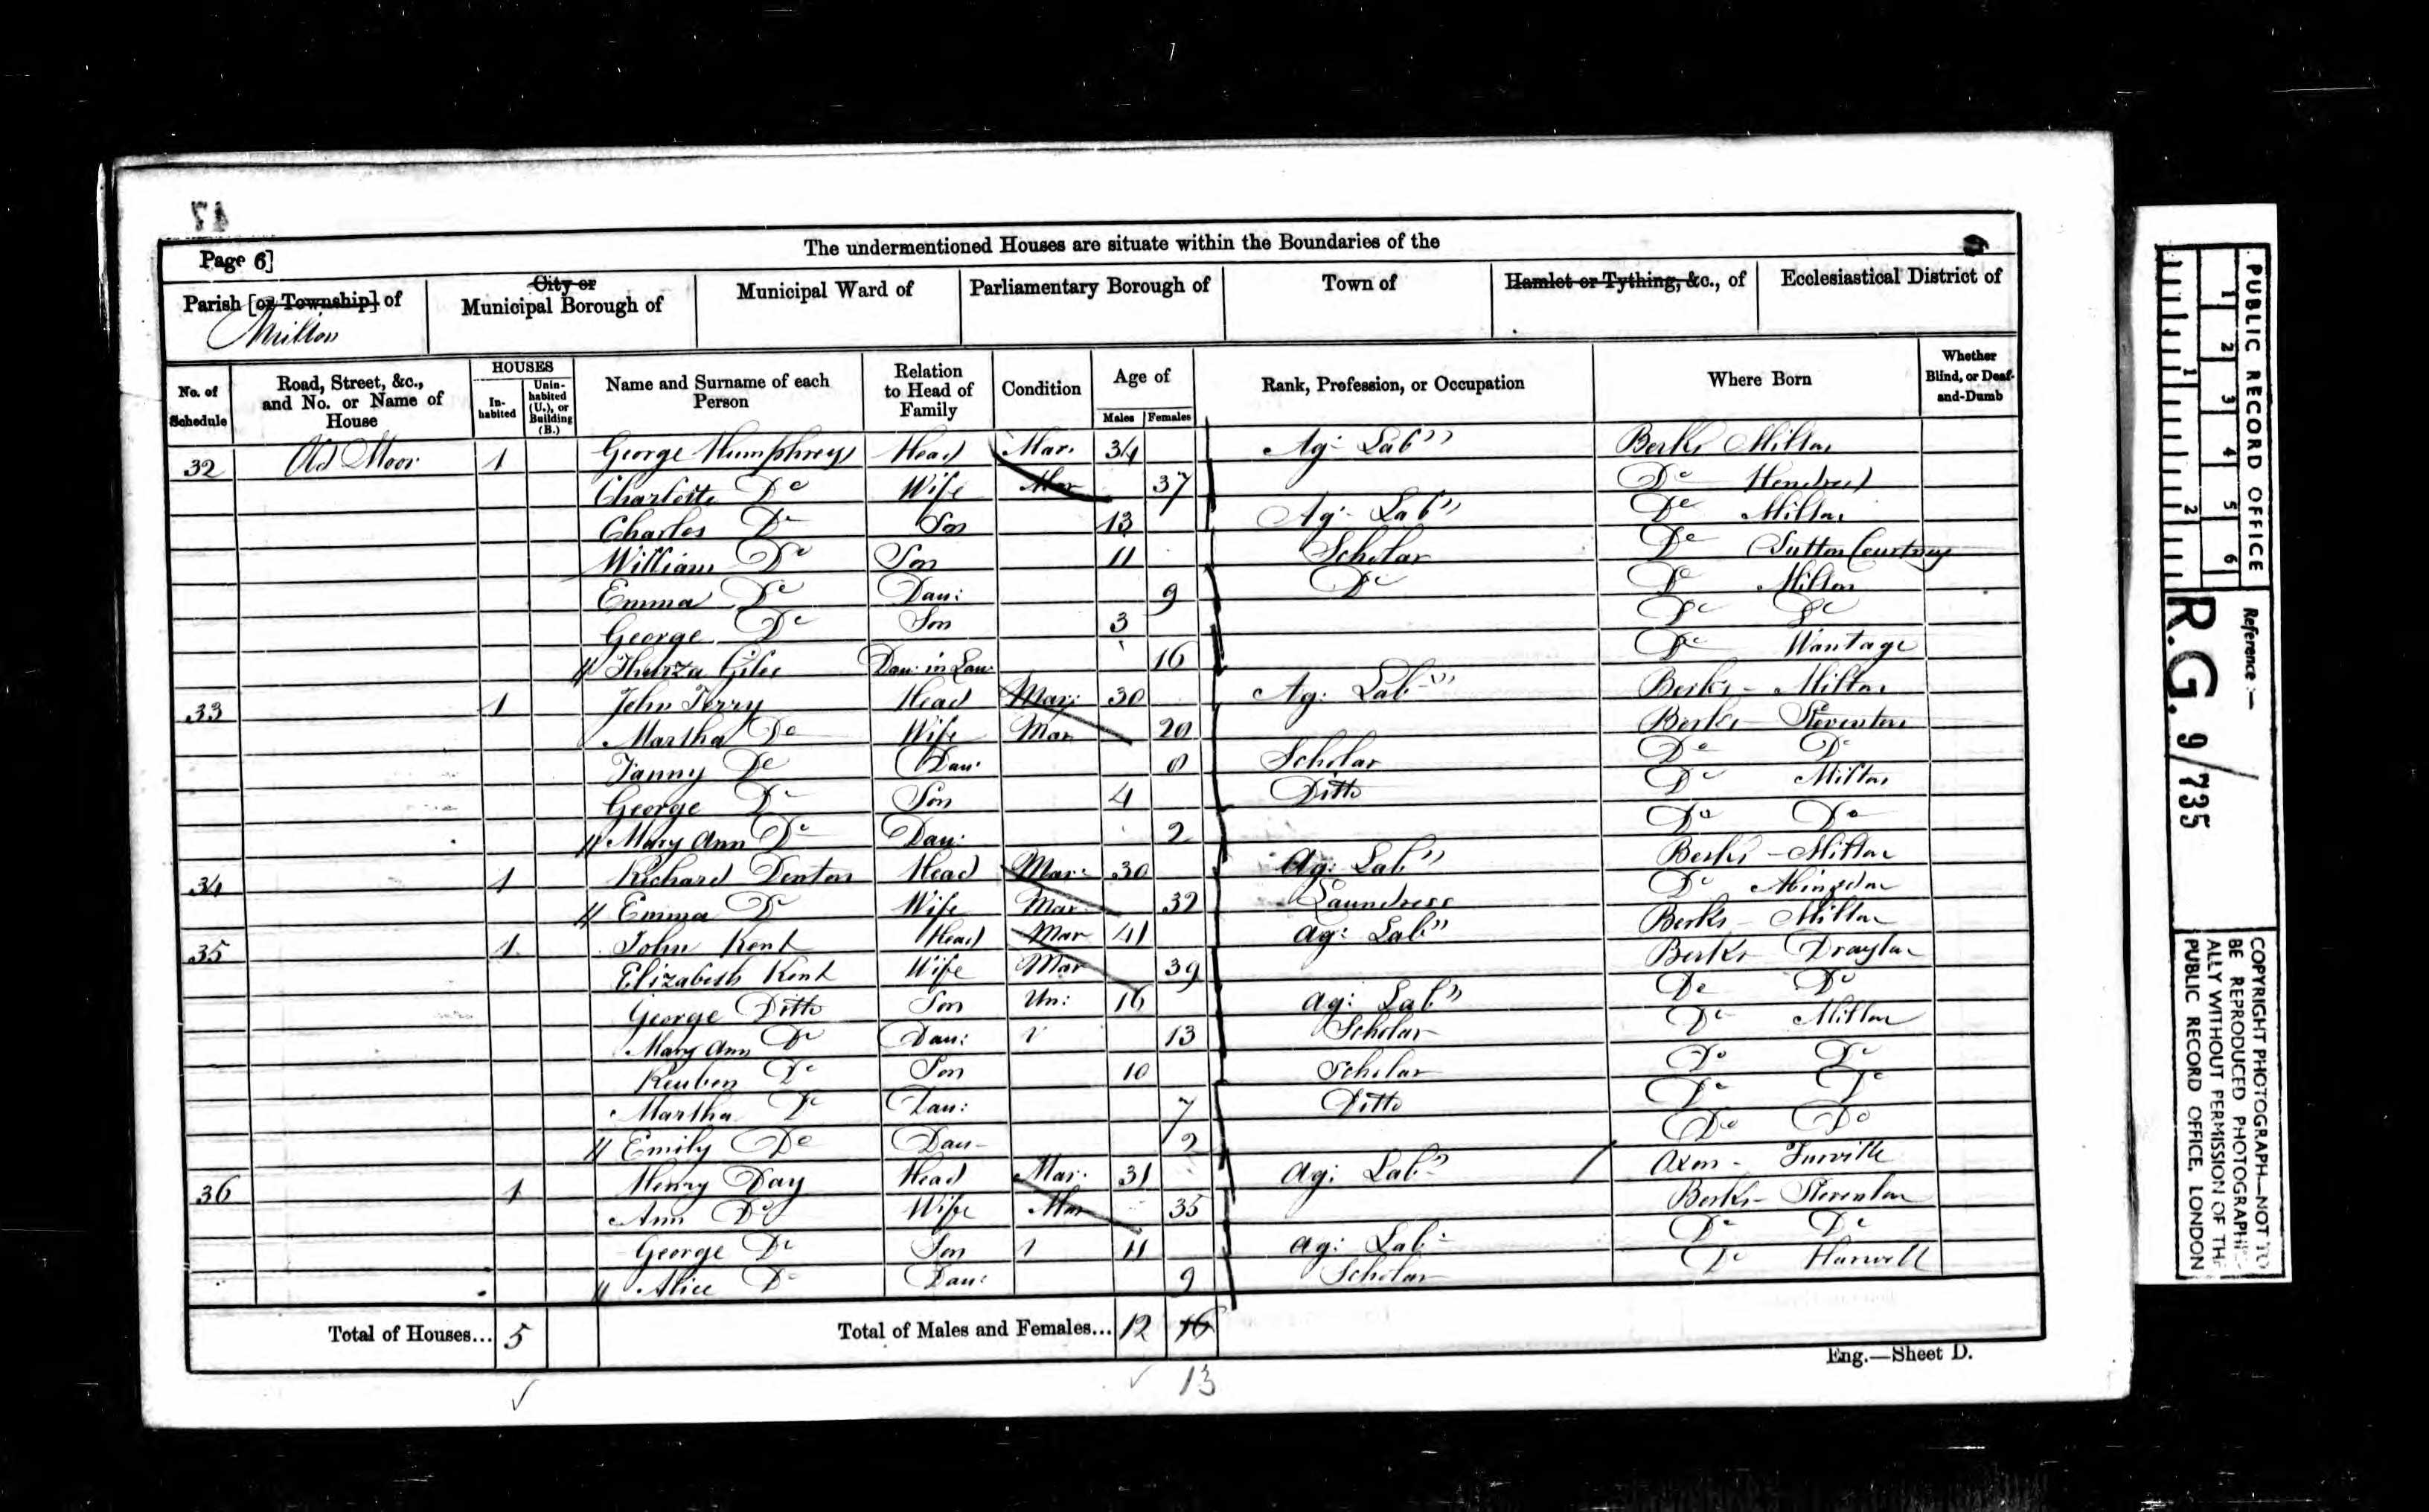 47
The undermentioned Houses are situate within the Boundaries of the
Page 6]
Parish [or Township] of Milton
City or Municipal Borough of
Municipal Ward of
Parliamentary Borough of
Town of
Hamlet or Tything, &c., of
Ecclesiastical District of
No. of Schedule
Road, Street, &c., and No. or Name of House
HOUSES
In-habited
Unin-habited (U.), or Building (B.)
Name and Surname of each Person
Relation to Head of Family
Condition
Age of
Males
Females
Rank, Profession, or Occupation
Where Born
Whether Blind, or Deaf-and-Dumb
32 Old Moor 1 George Humphreys Head Mar. 34 Ag: Lab" Berks Milton
Charlotte Do Wife Mar 37 Do Hendred
Charles Do Son 13 Ag: Lab" Do Milton
William Do Son 11 Scholar Do Sutton Courtney
Emma Do Dau: 9 Do Do Milton
George Do Son 3 Do Do
Thurza Giles Dau: in Law: 16 Do Wantage
33 1 John Terry Head Mar: 30 Ag: Lab" Berks - Milton
Martha Do Wife Mar 20 Berks Steventon
Fanny Do Dau: Scholar Do Do
George Do Son 4 Ditto Do Milton
Mary Ann Do Dau: 2 Do Do
34 1 Richard Denton Head Mar: 30 Ag: Lab" Berks - Milton
Emma Do Wife Mar 32 Laundress Do Abingdon
35 1 John Kent Head Mar 41 Ag: Lab" Berks - Milton
Elizabeth Kent Wife Mar 39 Berks Drayton
George Ditto Son Un: 16 Ag: Lab" Do Do
Mary Ann Do Dau: 13 Scholar Do Milton
Reuben Do Son 10 Scholar Do Do
Martha Do Dau: 7 Ditto Do Do
Emily Do Dau- 2 Do Do
36 1 Henry Day Head Mar. 31 Ag: Lab" Oxon -
Ann Do Wife Mar 35 Berks - Steventon
George Do Son 11 Ag: Lab: Do Do
Alice Do Dau: 9 Scholar Do Harwell
Total of Houses... 5
Total of Males and Females... 12 16
13
Eng.—Sheet D.
PUBLIC RECORD OFFICE
1 2 3 4 5 6
1 2
Reference :—
R.G. 9/735
COPYRIGHT PHOTOGRAPH—NOT TO
BE REPRODUCED PHOTOGRAPHIC-
ALLY WITHOUT PERMISSION OF THE
PUBLIC RECORD OFFICE, LONDON